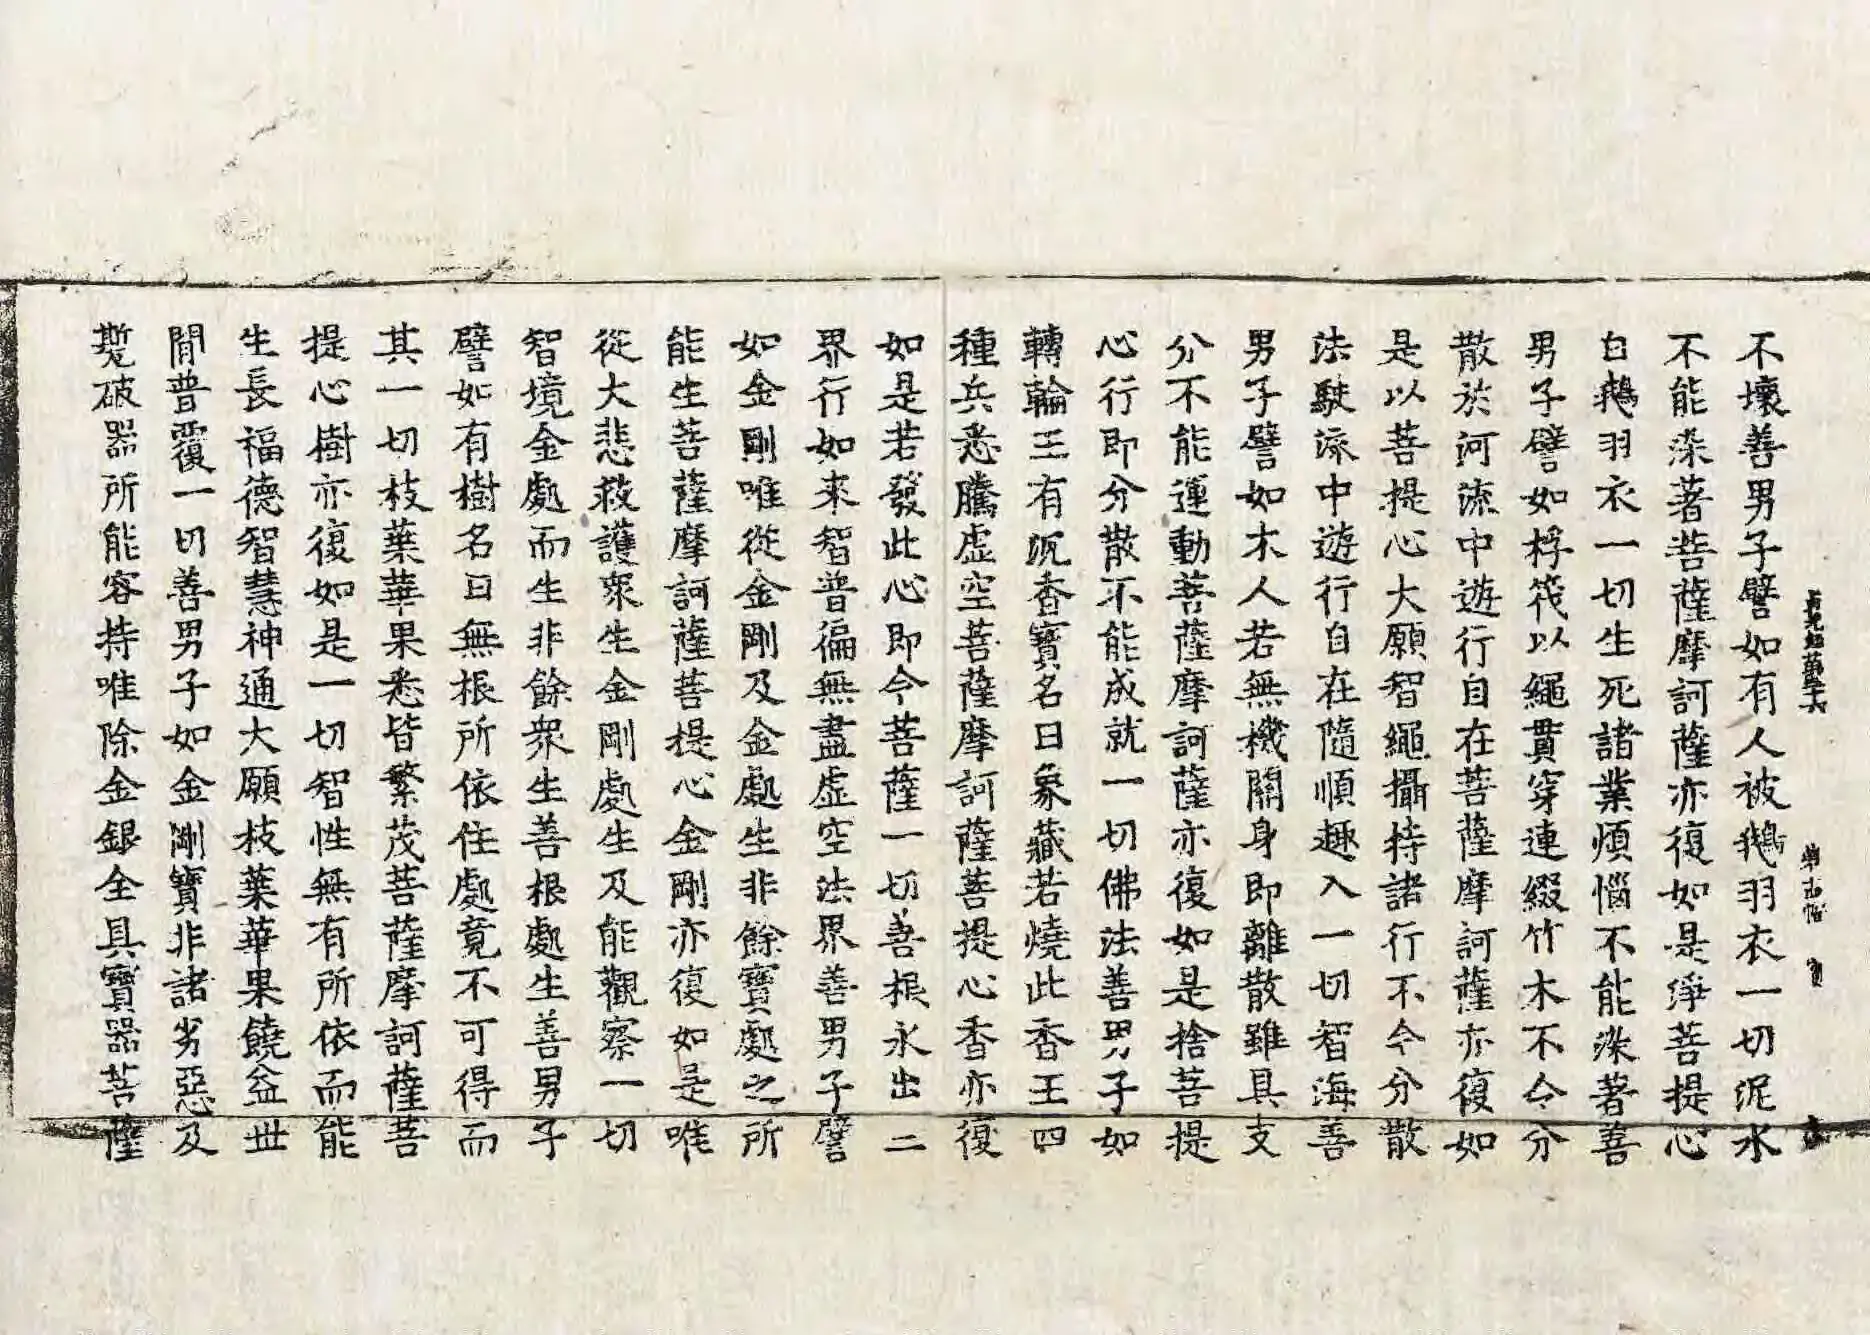 不壞善男子譬如有人被鵝羽衣一切泥水
不能染著菩薩摩訶薩亦復如是淨菩提心
白鵝羽衣一切生死諸業煩惱不能染著善
男子譬如桴筏以繩貫穿連綴竹木不令分
散於河流中遊行自在菩薩摩訶薩亦復如
是以菩提心大願智繩攝持諸行不令分散
法駛流中遊行自在隨順趣入一切智海善
男子譬如木人若無機關身即離散雖具支
分不能運動菩薩摩訶薩亦復如是捨菩提
心行即分散不能成就一切佛法善男子如
轉輪王有沉香寶名曰象藏若燒此香王四
種兵悉騰虛空菩薩摩訶薩菩提心香亦復
如是若發此心即令菩薩一切善根永出二
界行如來智普徧無盡虛空法界善男子譬
如金剛唯從金剛及金處生非餘寶處之所
能生菩薩摩訶薩菩提心金剛亦復如是唯
從大悲救護衆生金剛處生及能觀察一切
智境金處而生非餘衆生善根處生善男子
譬如有樹名曰無根所依住處竟不可得而
其一切枝葉華果悉皆繁茂菩薩摩訶薩菩
提心樹亦復如是一切智性無有所依而能
生長福德智慧神通大願枝葉華果饒益世
間普覆一切善男子如金剛寶非諸劣惡及
甈破器所能容持唯除金銀全具寶器菩薩